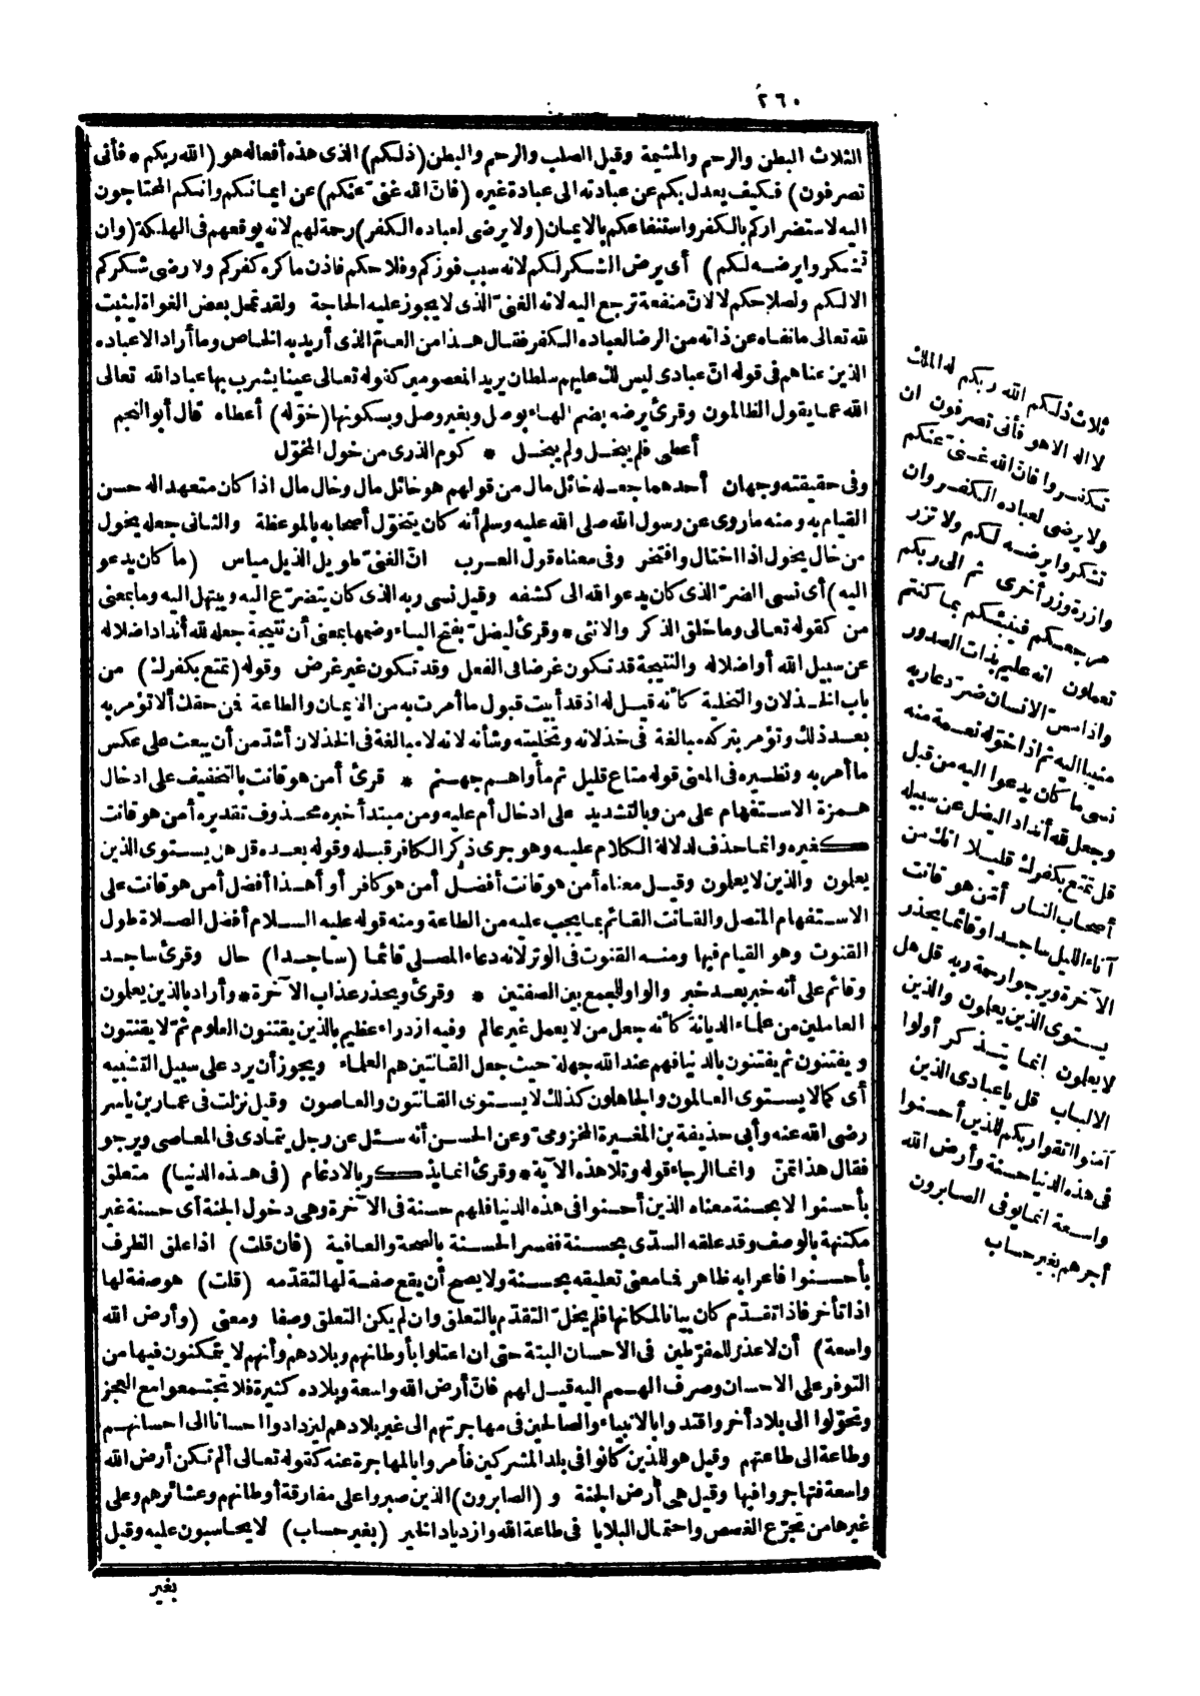 ٢٦٠
الثلاث البطن والرحم والمشيمة وقيل الصلب والرحم والبطن (ذلكم) الذى هذه أفعاله هو (الله ربكم * فأنى
تصرفون) فكيف يعدل بكم عن عبادته الى عبادة غيره (فانّ الله غنىّ عنكم) عن ايمانكم وانكم المحتاجون
اليه لاستضراركم بالكفر واستنفاعكم بالايمان (ولا يرضى لعباده الكفر) رحة لهم لانه يوقعهم فى الهلكة (وان
تشكروا يرضه لكم) أى يرض الشكر لكم لانه سبب فوزكم وفلاحكم فاذن ما كره كفركم ولا رضى شكركم
الا لكم ولصلاحكم لا لانّ منفعة ترجع اليه لانه الغنىّ الذى لا يجوز عليه الحاجة ولقد تمحل بعض الغواة ليثبت
لله تعالى ما نفاه عن ذاته من الرضا لعباده الكفر فقال هذا من العامّ الذى أريد به الخاص وما أراد الا عباده
الذين عناهم فى قوله انّ عبادى ليس لك عليهم سلطان يريد المعصومين كقوله تعالى عينا يشرب بها عباد الله تعالى
الله عما يقول الظالمون وقرئ يرضه بضم الهاء بوصل وبغير وصل وبسكونها (خوّله) أعطاه قال أبو النجم
أعطى فلم يبخل ولم يبخل * كوم الذرى من خول المخوّل
وفى حقيقته وجهان أحدهما جعله خائل مال من قولهم هو خائل مال وخال مال اذا كان متعهدا له حسن
القيام به ومنه ما روى عن رسول الله صلى الله عليه وسلم أنه كان يتخوّل أصحابه بالموعظة والثانى جعله يخول
من خال يخول اذا اختال وافتخر وفى معناه قول العرب انّ الغنىّ طويل الذيل مياس (ما كان يدعو
اليه) أى نسى الضرّ الذى كان يدعو الله الى كشفه وقيل نسى ربه الذى كان يتضرّع اليه ويبتهل اليه وما بمعنى
من كقوله تعالى وما خلق الذكر والانثى * وقرئ ليضلّ بفتح الياء وضمها بمعنى أن نتيجة جعله لله أندادا ضلاله
عن سبيل الله أو اضلاله والنتيجة قد تكون غرضا فى الفعل وقد تكون غير غرض وقوله (تمتع بكفرك) من
باب الخذلان والتخلية كأنه قيل له اذ قد أبيت قبول ما أمرت به من الايمان والطاعة فن حقك ألا تؤمر به
بعد ذلك وتؤمر بتركه مبالغة فى خذلانه وتخليته وشأنه لانه لا مبالغة فى الخذلان أشدّ من أن يبعث على عكس
ما أمر به ونظيره فى المعنى قوله متاع قليل ثم مأواهم جهنم * قرئ أمن هو قانت بالتخفيف على ادخال
همزة الاستفهام على من وبالتشديد على ادخال أم عليه ومن مبتدأ خبره محذوف تقديره أمن هو قانت
كغيره وانما حذف لدلالة الكلام عليه وهو جرى ذكر الكافر قبله وقوله بعده قل هل يستوى الذين
يعلمون والذين لا يعلمون وقيل معناه أمن هو قانت أفضل أمن هو كافر أو أهذا أفضل أمن هو قانت على
الاستفهام المتصل والقانت القائم بما يجب عليه من الطاعة ومنه قوله عليه السلام أفضل الصلاة طول
القنوت وهو القيام فيها ومنه القنوت فى الوتر لانه دعاء المصلى قائما (ساجدا) حال وقرئ ساجد
وقائم على أنه خبر بعد خبر والواو للجمع بين الصفتين * وقرئ ويحذر عذاب الآخرة * وأراد بالذين يعلمون
العاملين من علماء الديانة كأنه جعل من لا يعمل غير عالم وفيه ازدراء عظيم بالذين يقتنون العلوم ثمّ لا يقنتون
ويفتنون ثم يفتنون بالدنيا فهم عند الله جهلة حيث جعل القانتين هم العلماء ويجوز أن يرد على سبيل التشبيه
أى كما لا يستوى العالمون والجاهلون كذلك لا يستوى القانتون والعاصون وقيل نزلت فى عمار بن ياسر
رضى الله عنه وأبى حذيفة بن المغيرة المخزومىّ وعن الحسن أنه سئل عن رجل يتمادى فى المعاصى ويرجو
فقال هذا تمنّ وانما الرجاء قوله وتلا هذه الآية * وقرئ انما يذكر بالادغام (فى هذه الدنيا) متعلق
بأحسنوا لا بحسنة معناه الذين أحسنوا فى هذه الدنيا فلهم حسنة فى الآخرة وهى دخول الجنة أى حسنة غير
مكتنهة بالوصف وقد علقه السدّى بحسنة ففسر الحسنة بالصحة والعافية (فان قلت) اذا علق الظرف
بأحسنوا فاعرابه ظاهر فما معنى تعليقه بحسنة ولا يصح أن يقع صفة لها لتقدّمه (قلت) هو صفة لها
اذا تأخر فاذا تقدّم كان بيانا لمكانها فلم يخلّ التقدّم بالتعلق وان لم يكن التعلق وصفا ومعنى (وأرض الله
واسعة) أن لا عذر للمفرّطين فى الاحسان البتة حتى ان اعتلوا بأوطانهم وبلادهم وأنهم لا يتمكنون فيها من
التوفر على الاحسان وصرف الهمم اليه قيل لهم فانّ أرض الله واسعة وبلاده كثيرة فلا تجتمعوا مع العجز
وتحوّلوا الى بلاد أخر واقتدوا بالانبياء والصالحين فى مهاجرتهم الى غير بلادهم ليزدادوا احسانا الى احسانهم
وطاعة الى طاعتهم وقيل هو للذين كانوا فى بلد المشركين فأمروا بالمهاجرة عنه كقوله تعالى ألم تكن أرض الله
واسعة فتهاجروا فيها وقيل هى أرض الجنة و (الصابرون) الذين صبروا على مفارقة أوطانهم وعشائرهم وعلى
غيرها من تجرّع الغصص واحتمال البلايا فى طاعة الله وازدياد الخير (بغير حساب) لا يحاسبون عليه وقيل
بغير
ثلاث ذلكم الله ربكم له الملك
لا اله الا هو فأنى تصرفون ان
تكفروا فانّ الله غنىّ عنكم
ولا يرضى لعباده الكفر وان
تشكروا يرضه لكم ولا تزر
وازرة وزر أخرى ثم الى ربكم
مرجعكم فينبئكم بما كنتم
تعملون انه عليم بذات الصدور
واذا مسّ الانسان ضرّ دعا ربه
منيبا اليه ثم اذا خوّله نعمة منه
نسى ما كان يدعوا اليه من قبل
وجعل لله أندادا ليضل عن سبيله
قل تمتع بكفرك قليلا انك من
أصحاب النار أمّن هو قانت
آناء الليل ساجدا وقائما يحذر
الآخرة ويرجوا رحمة ربه قل هل
يستوى الذين يعلمون والذين
لا يعلمون انما يتذكر أولوا
الالباب قل يا عبادى الذين
آمنوا اتقوا ربكم للذين أحسنوا
فى هذه الدنيا حسنة وأرض الله
واسعة انما يوفى الصابرون
أجرهم بغير حساب